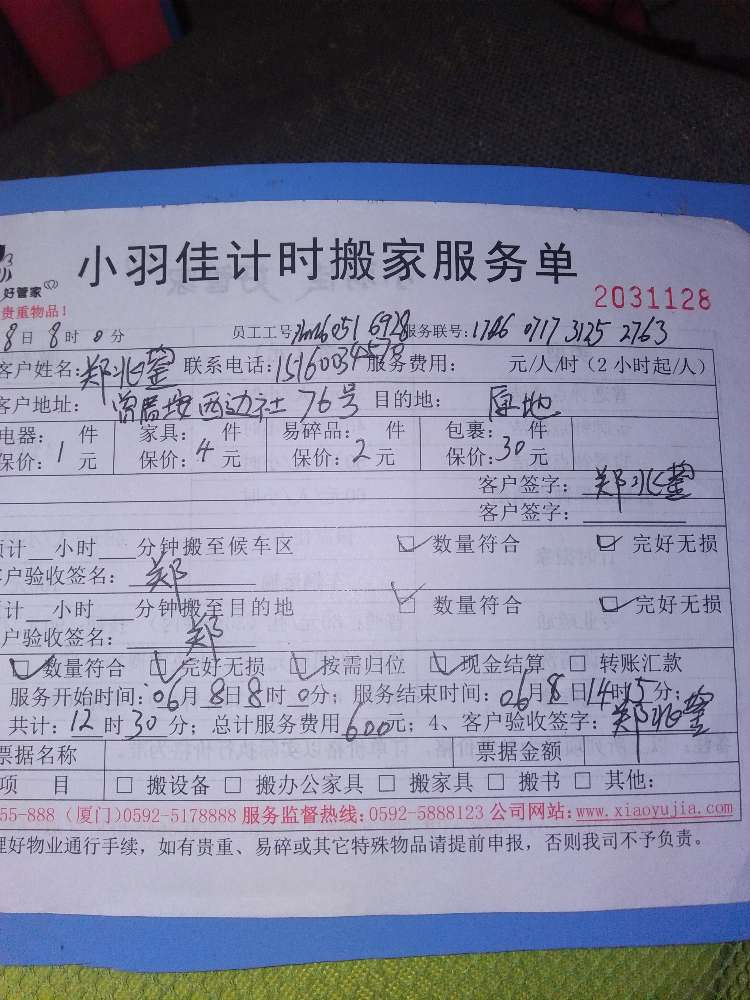 小羽佳计时搬家服务单
好管家
2031128
贵重物品！
8日 8时 0分 员工工号: 服务联号:1746 0717 3125 2763
客户姓名:郑兆銮 联系电话: 服务费用: 元/人/时（2小时起/人）
客户地址: 曾厝垵西边社76号 目的地: 原地
电器: 件 家具: 件 易碎品: 件 包裹: 件
保价: 1 元 保价: 4 元 保价: 2 元 保价: 30 元
客户签字: 郑兆銮
客户签字:
预计 小时 分钟搬至候车区 数量符合 完好无损
客户验收签名: 郑
预计 小时 分钟搬至目的地 数量符合 完好无损
客户验收签名: 郑
数量符合 完好无损 按需归位 现金结算 转账汇款
服务开始时间:06月8日8时0分; 服务结束时间:06月8日14时15分;
共计:12时30分; 总计服务费用600元; 4、客户验收签字: 郑兆銮
票据名称 票据金额
项目 搬设备 搬办公家具 搬家具 搬书 其他:
55-888（厦门）0592-5178888 服务监督热线:0592-5888123 公司网站:www.xiaoyujia.com
理好物业通行手续，如有贵重、易碎或其它特殊物品请提前申报，否则我司不予负责。